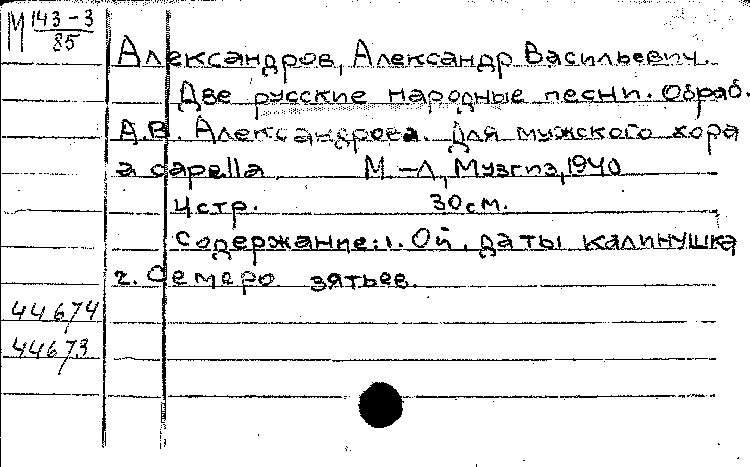 М 143-3
85
Александров, Александр Васильевич.
Две русские народные песни. Обраб.
А.В. Александрова. Для мужского хора
a capella. М.-Л., Музгиз, 1940
4 стр. 30 см.
Содержание: 1. Ой, да ты калинушка
2. Семеро зятьев.
44674
44673